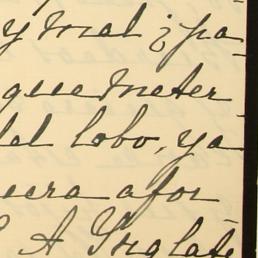 y mal ¿pa-
que meter
del lobo, ya
uera afor
A Inglate